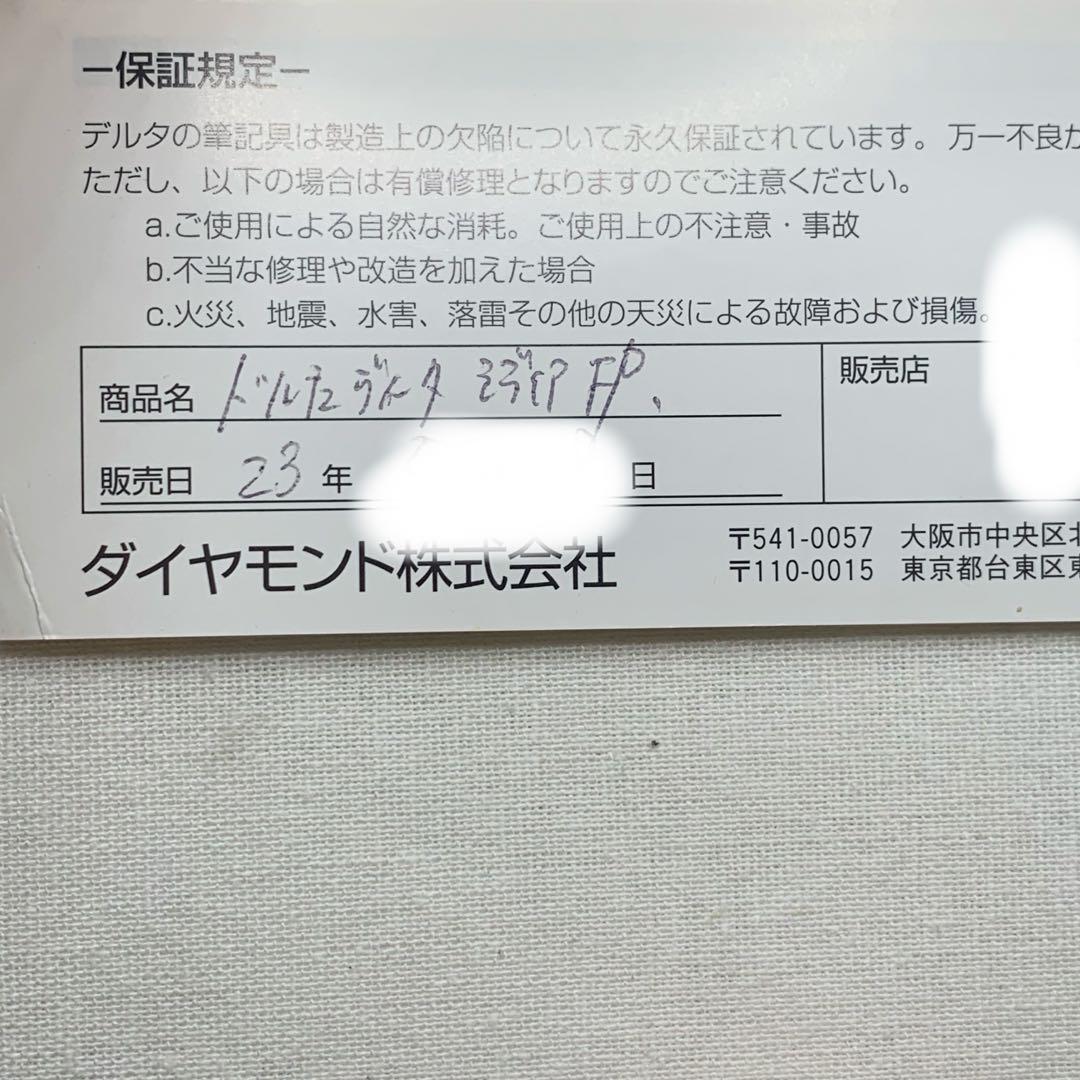 －保証規定－
デルタの筆記具は製造上の欠陥について永久保証されています。万一不良が
ただし、以下の場合は有償修理となりますのでご注意ください。
a.ご使用による自然な消耗。ご使用上の不注意・事故
b.不当な修理や改造を加えた場合
c.火災、地震、水害、落雷その他の天災による故障および損傷。
商品名 ドルチェヴィータ ミディアム FP.
販売店
販売日 23年 日
ダイヤモンド株式会社
〒541-0057 大阪市中央区北
〒110-0015 東京都台東区東